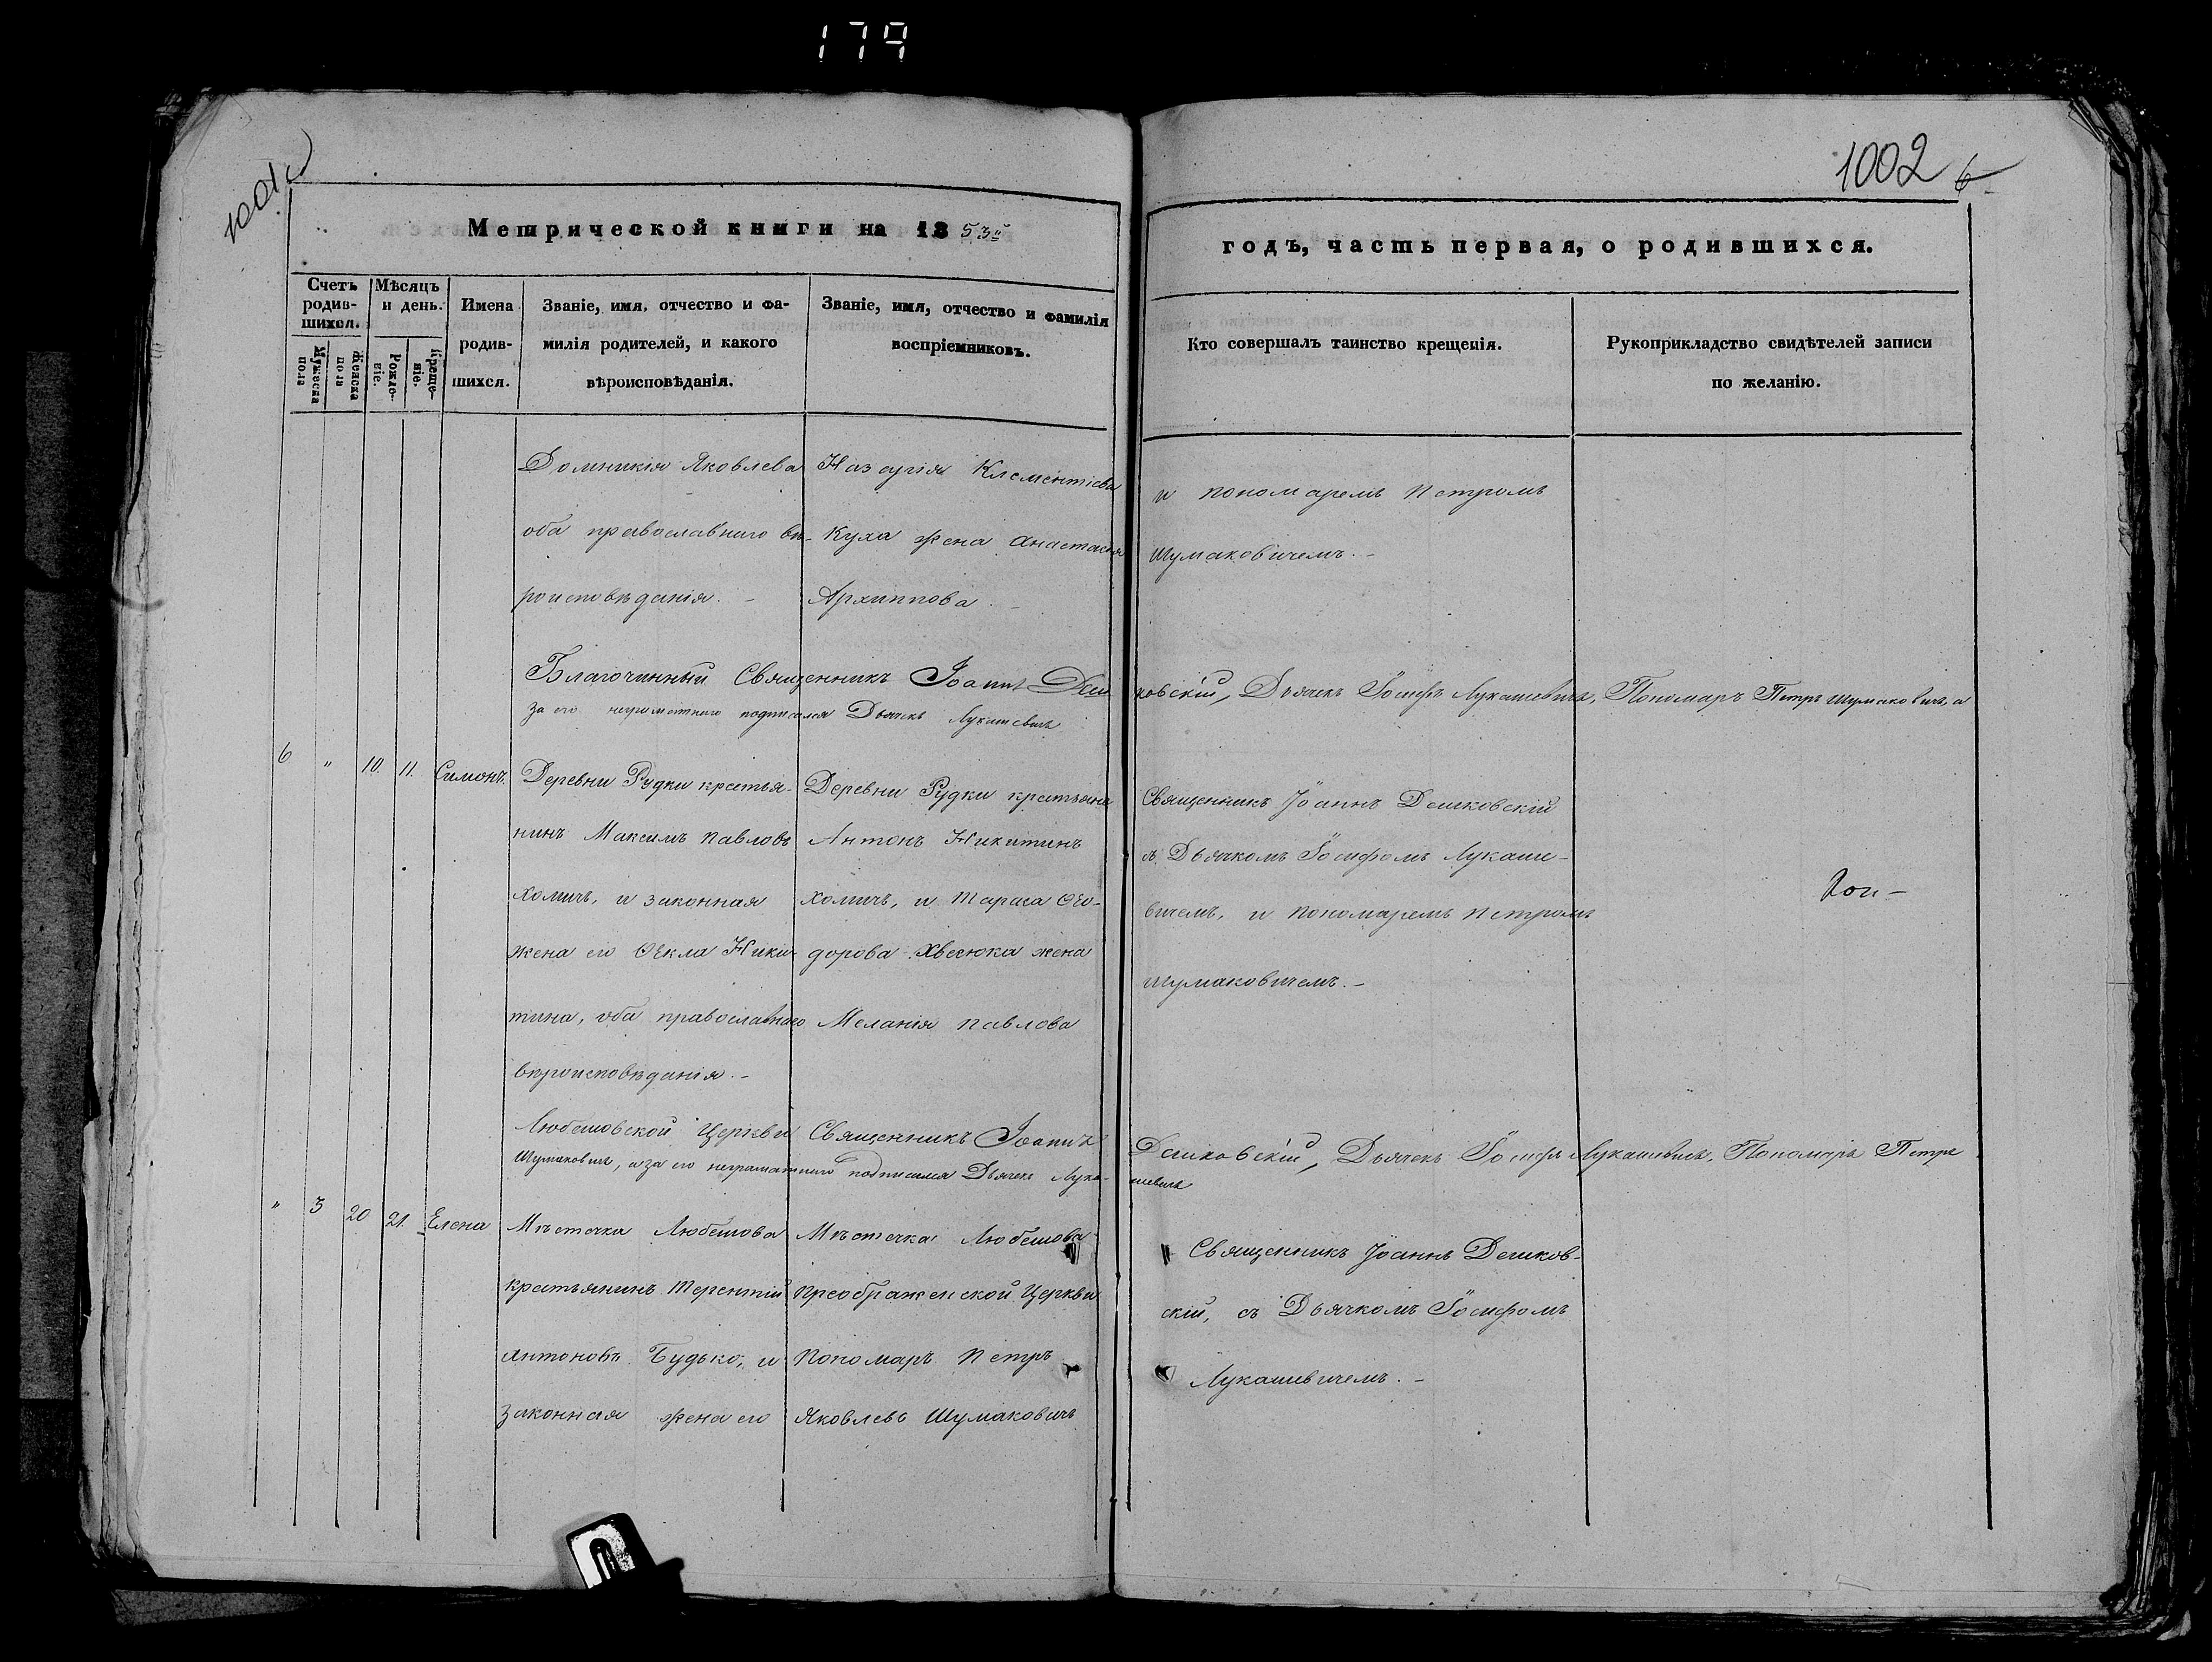 179
1001
1002
6
Метрической книги на 1853й
годъ, часть первая, о родившихся.
Счетъ родив-шихся.
Мужеска пола
Женска пола
Мѣсяцъ и день.
Рожде-ніе.
Креще-ніе.
Имена родив-шихся.
Званіе, имя, отчество и фа-
милія родителей, и какого
вѣроисповѣданія.
Званіе, имя, отчество и фамилія
воспріемниковъ.
Кто совершалъ таинство крещенія.
Рукоприкладство свидѣтелей записи
по желанію.
Домникія Яковлева
оба православнаго вѣ-
роисповѣданія. –
Назарія Климентіева
Куха жена Анастасія
Архиппова. –
и пономаремъ Петромъ
Шумаковичемъ. –
Благочинный Священникъ Іоаннъ Дешковскій, Дьячекъ Іосифъ Лукашевичъ, Пономаръ Петръ Шумаковичъ, а
за его неграмотного подписался Дьячекъ Лукашевичъ
6 " 10. 11. Симонъ.
Деревни Рудки крестья-
нинъ Максимъ Павловъ
Хомичъ, и законная
жена его Ѳекла Ники-
тина, оба православнаго
вѣроисповѣданія. –
Деревни Рудки крестьяне
Антонъ Никитинъ
Хомичъ, и Тараса Ѳео-
дорова Хвесюка жена
Меланія Павлова
Священникъ Іоаннъ Дешковскій
съ Дьячкомъ Іосифомъ Лукаше-
вичемъ, и пономаремъ Петромъ
Шумаковичемъ. –
Любешовской Церкви Священникъ Іоаннъ Дешковскій, Дьячекъ Іосифъ Лукашевичъ, Пономаръ Петръ
Шумаковичъ, а за его неграмотного подписался Дьячекъ Лука-шевичъ
" 3 20 21. Елена
Мѣстечка Любешова
крестьянинъ Терентій
Антоновъ Будько, и
законная жена его
Мѣстечка Любешова
Преображенской Церкви
Пономаръ Петръ
Яковлевъ Шумаковичъ
Священникъ Іоаннъ Дешков-
скій, съ Дьячкомъ Іосифомъ
Лукашевичемъ. –